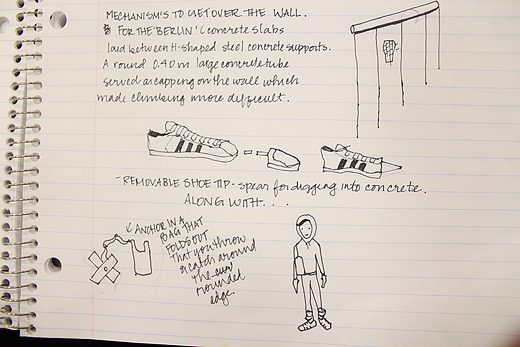 MECHANISM'S TO GET OVER THE WALL.
FOR THE 'BERLIN' Concrete slabs
laid between H-shaped steel concrete supports.
A round 0.40 m large concrete tube
served as capping on the wall which
made climbing more difficult.
- REMOVABLE SHOE TIP - spear for digging into concrete.
ALONG WITH . . .
ANCHOR IN A
BAG THAT
FOLDS OUT
That you throw
& catch around
the
rounded
edge.